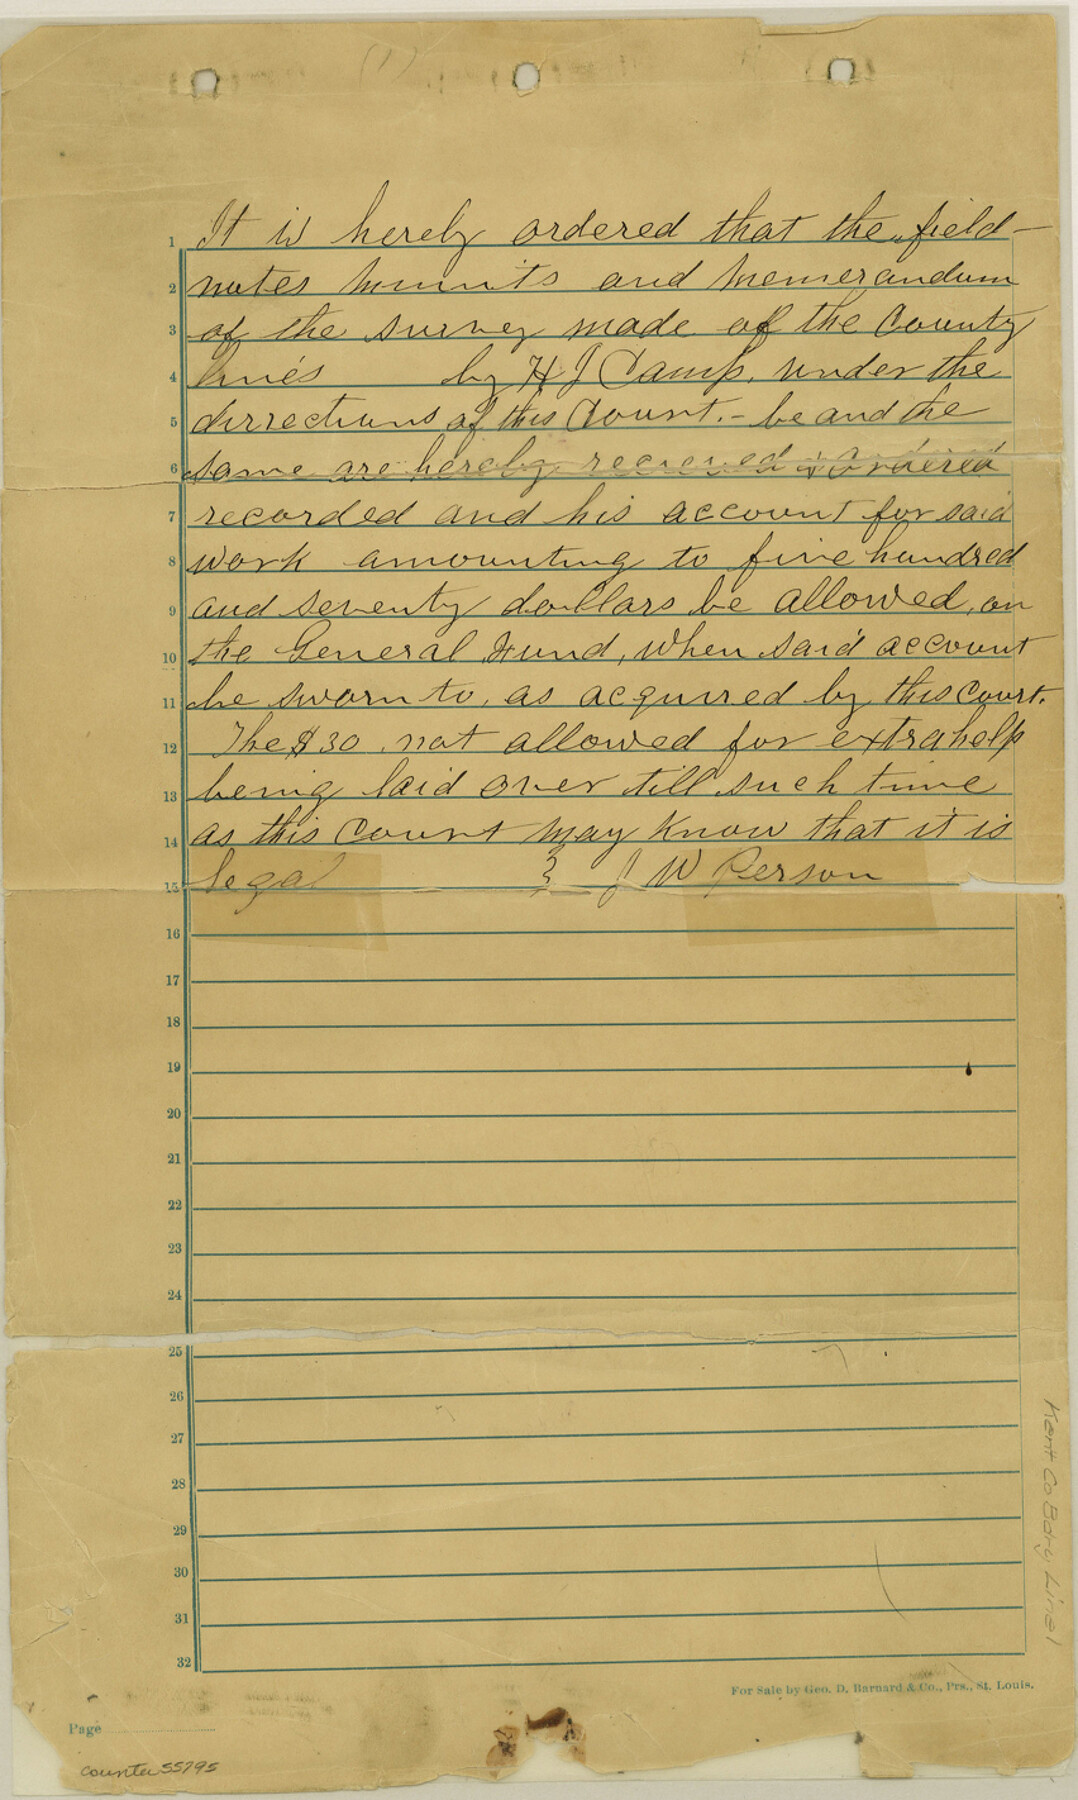 (1)
1 It is hereby ordered that the field-
2 notes minuits and memerandum
3 of the survey made of the County
4 lines by H J Camp, under the
5 dirrections of this Court.- be and the
6 same are hereby recieved & Ordered
7 recorded and his account for said
8 work amounting to five hundred
9 and seventy dollars be allowed, on
10 the General Fund, when said account
11 be sworn to, as acquired by this Court.
12 The $30 not allowed for extra help
13 being laid over till such time
14 as this Court may Know that it is
15 legal } J W Person
16
17
18
19
20
21
22
23
24
25
26
27
28
29
30
31
32
Kent Co Bdry Line 1
For Sale by Geo. D. Barnard & Co., Prs., St. Louis.
Page
counter 55795